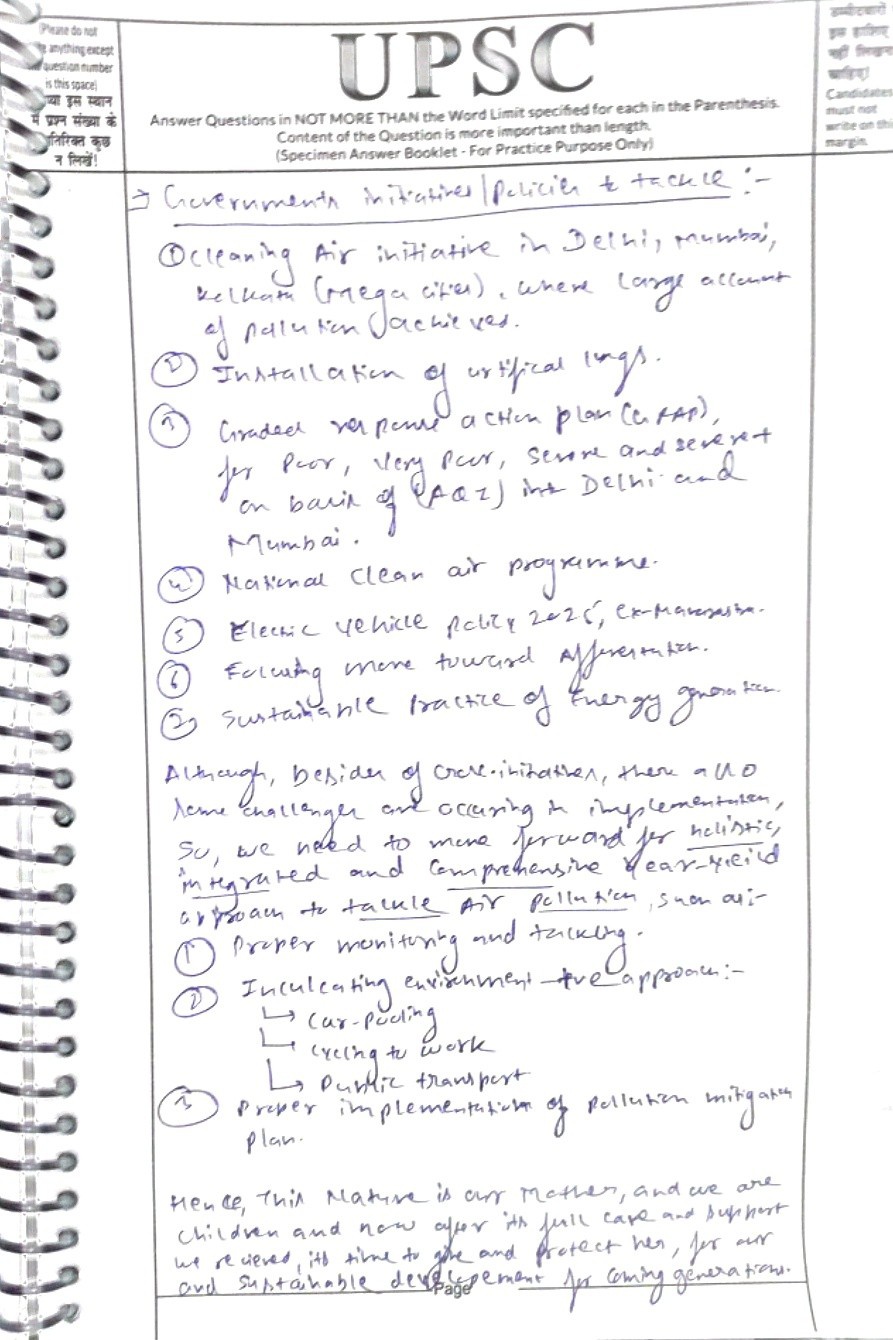 (Please do not
anything except
question number
is this space)
इस स्थान
में प्रश्न संख्या के
तिरिक्त कुछ
न लिखें!
UPSC
Answer Questions in NOT MORE THAN the Word Limit specified for each in the Parenthesis.
Content of the Question is more important than length.
(Specimen Answer Booklet - For Practice Purpose Only)
उम्मीदवारों
इस हाशिए
नहीं लिखना
चाहिए)
Candidates
must not
write on this
margin.
→ Governments initiatives/policies to tackle :-
① Cleaning Air initiative in Delhi, Mumbai,
Kolkata (mega cities), where large account
of pollution achieves.
② Installation of artifical lungs.
③ Graded response action plan (GRAP),
for Poor, Very poor, severe and severe+
on basis of (AQI) in Delhi and
Mumbai.
④ National Clean air programme.
⑤ Electric vehicle policy 2025, ex-Maharastra.
⑥ Focusing more toward Afforestation.
⑦ Sustainable Practice of Energy generation.
Although, besides of initiatives, there also
some challenges are occuring in implementation,
So, we need to move forward for holistic,
integrated and comprehensive
approach to tackle Air pollution, such as:-
① Proper monitoring and tackling.
② Inculcating environment +ve approach:-
↳ Car-pooling
↳ cycling to work
↳ Public transport
③ Proper implementation of pollution mitigation
plan.
Hence, This Nature is our Mother, and we are
children and now after its full care and support
we recieved, its time to give and protect her, for our
and sustainable developement for coming generations.
Page